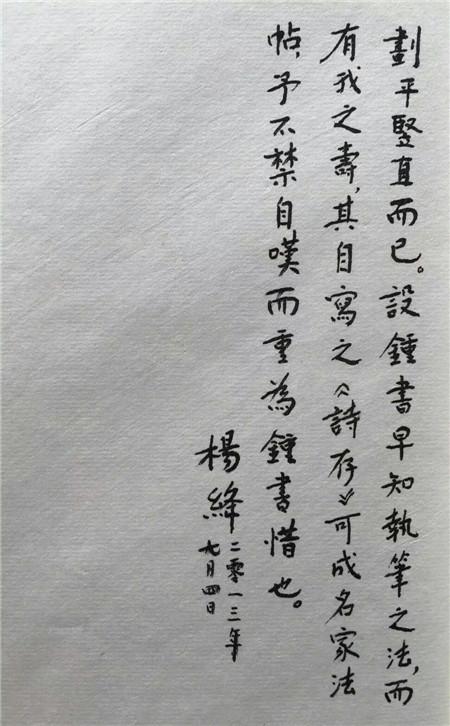 劃平豎直而已。設鍾書早知執筆之法,而
有我之壽,其自寫之《詩存》可成名家法
帖,予不禁自嘆而重為鍾書惜也。
楊絳二零一三年
九月四日